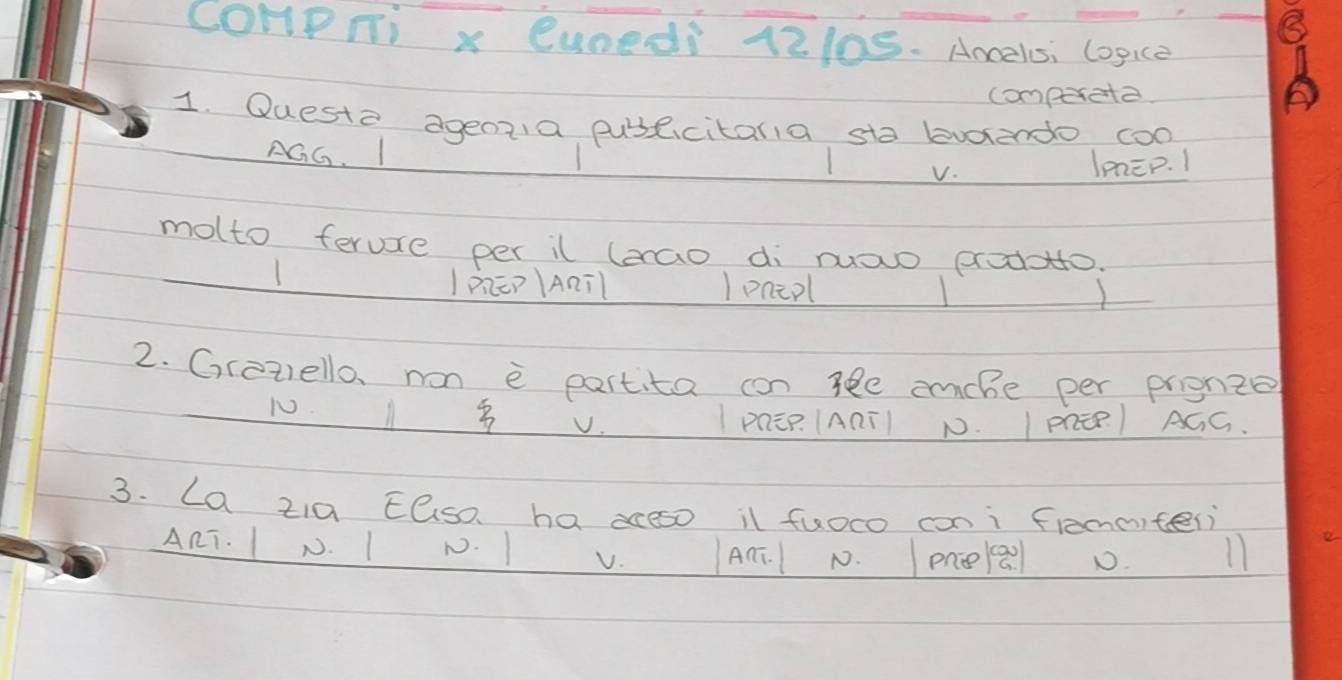 COMPITI x lunedì 12/05. Analisi logica
comparata
1. Questa agenzia pubblicitaria sta lavorando con
AGG. | | | V. |PREP.|
molto fervore per il lancio di nuovo prodotto.
| |PREP|ART| |PREP| | |
2. Graziella non è partita con le amiche per pigrizia
N. || V. |PREP.|ART| N. |PREP.| AGG.
3. La zia Elisa ha acceso il fuoco con i fiammiferi
ART. | N. | N. | V. |ART.| N. |PREP| N. ||